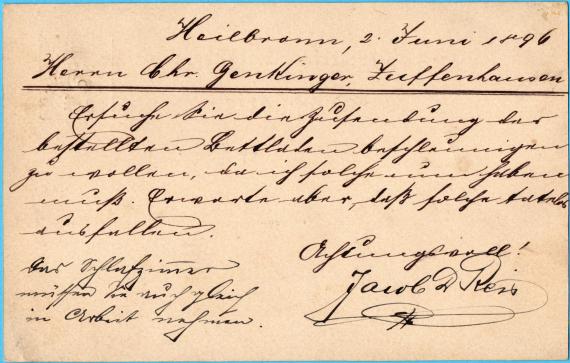 Heilbronn, 2. Juni 1896
Herrn Chr. Genkinger, Zuffenhausen
Ersuche Sie die Zusendung der
bestellten Bettladen beschleunigen
zu wollen, da ich solche nun haben
muß. Erwarte aber, daß solche tadellos
ausfallen.
Achtungsvoll!
Jacob D Reis
Das Schlafzimmer
müssen Sie auch gleich
in Arbeit nehmen.